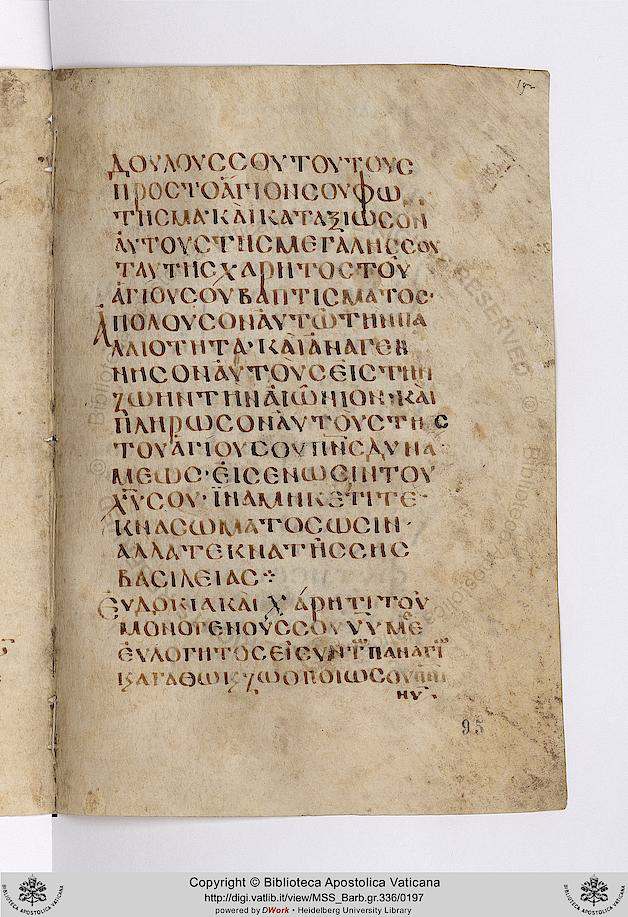 ΔΟΥΛΟΥCCΟΥΤΟΥΤΟΥC
ΠΡΟCΤΟΑΓΙΟΝCΟΥΦΩ
ΤΗCΜΑ·ΚΑΙΚΑΤΑΞΙΩCΟΝ
ΑΥΤΟΥCΤΗCΜΕΓΑΛΗCCΟΥ
ΤΑΥΤΗCΧΑΡΗΤΟCΤΟΥ
ΑΓΙΟΥCΟΥΒΑΠΤΙCΜΑΤΟC·
ΑΠΟΛΟΥCΟΝΑΥΤΩΤΗΝΠΑ
ΛΑΙΟΤΗΤΑ·ΚΑΙΑΝΑΓΕΝ
ΝΗCΟΝΑΥΤΟΥCΕΙCΤΗΝ
ΖΩΗΝΤΗΝΑΙΩΝΙΟΝ·ΚΑΙ
ΠΛΗΡΩCΟΝΑΥΤΟΥCΤΗC
ΤΟΥΑΓΙΟΥCΟΥΠΝCΔΥΝΑ
ΜΕΩC·ΕΙCΕΝΩCΙΝΤΟΥ
ΧΥCΟΥ·ΙΝΑΜΗΚΕΤΙΤΕ
ΚΝΑCΩΜΑΤΟCΩCΙΝ·
ΑΛΛΑΤΕΚΝΑΤΗCCΗC
ΒΑCΙΛΕΙΑC
ΕΥΔΟΚΙΑΚΑΙΧΑΡΗΤΙΤΟΥ
ΜΟΝΟΓΕΝΟΥCCΟΥΥΥΜΕ
ΕΥΛΟΓΗΤΟCΕΙCΥΝΤΠΑΝΑΓΙ
ΚΑΓΑΘΩΚΖΩΟΠΟΙΩCΟΥΠΝΙ
ΝΥ
95
Copyright © Biblioteca Apostolica Vaticana
http://digi.vatlib.it/view/MSS_Barb.gr.336/0197
powered by DWork • Heidelberg University Library